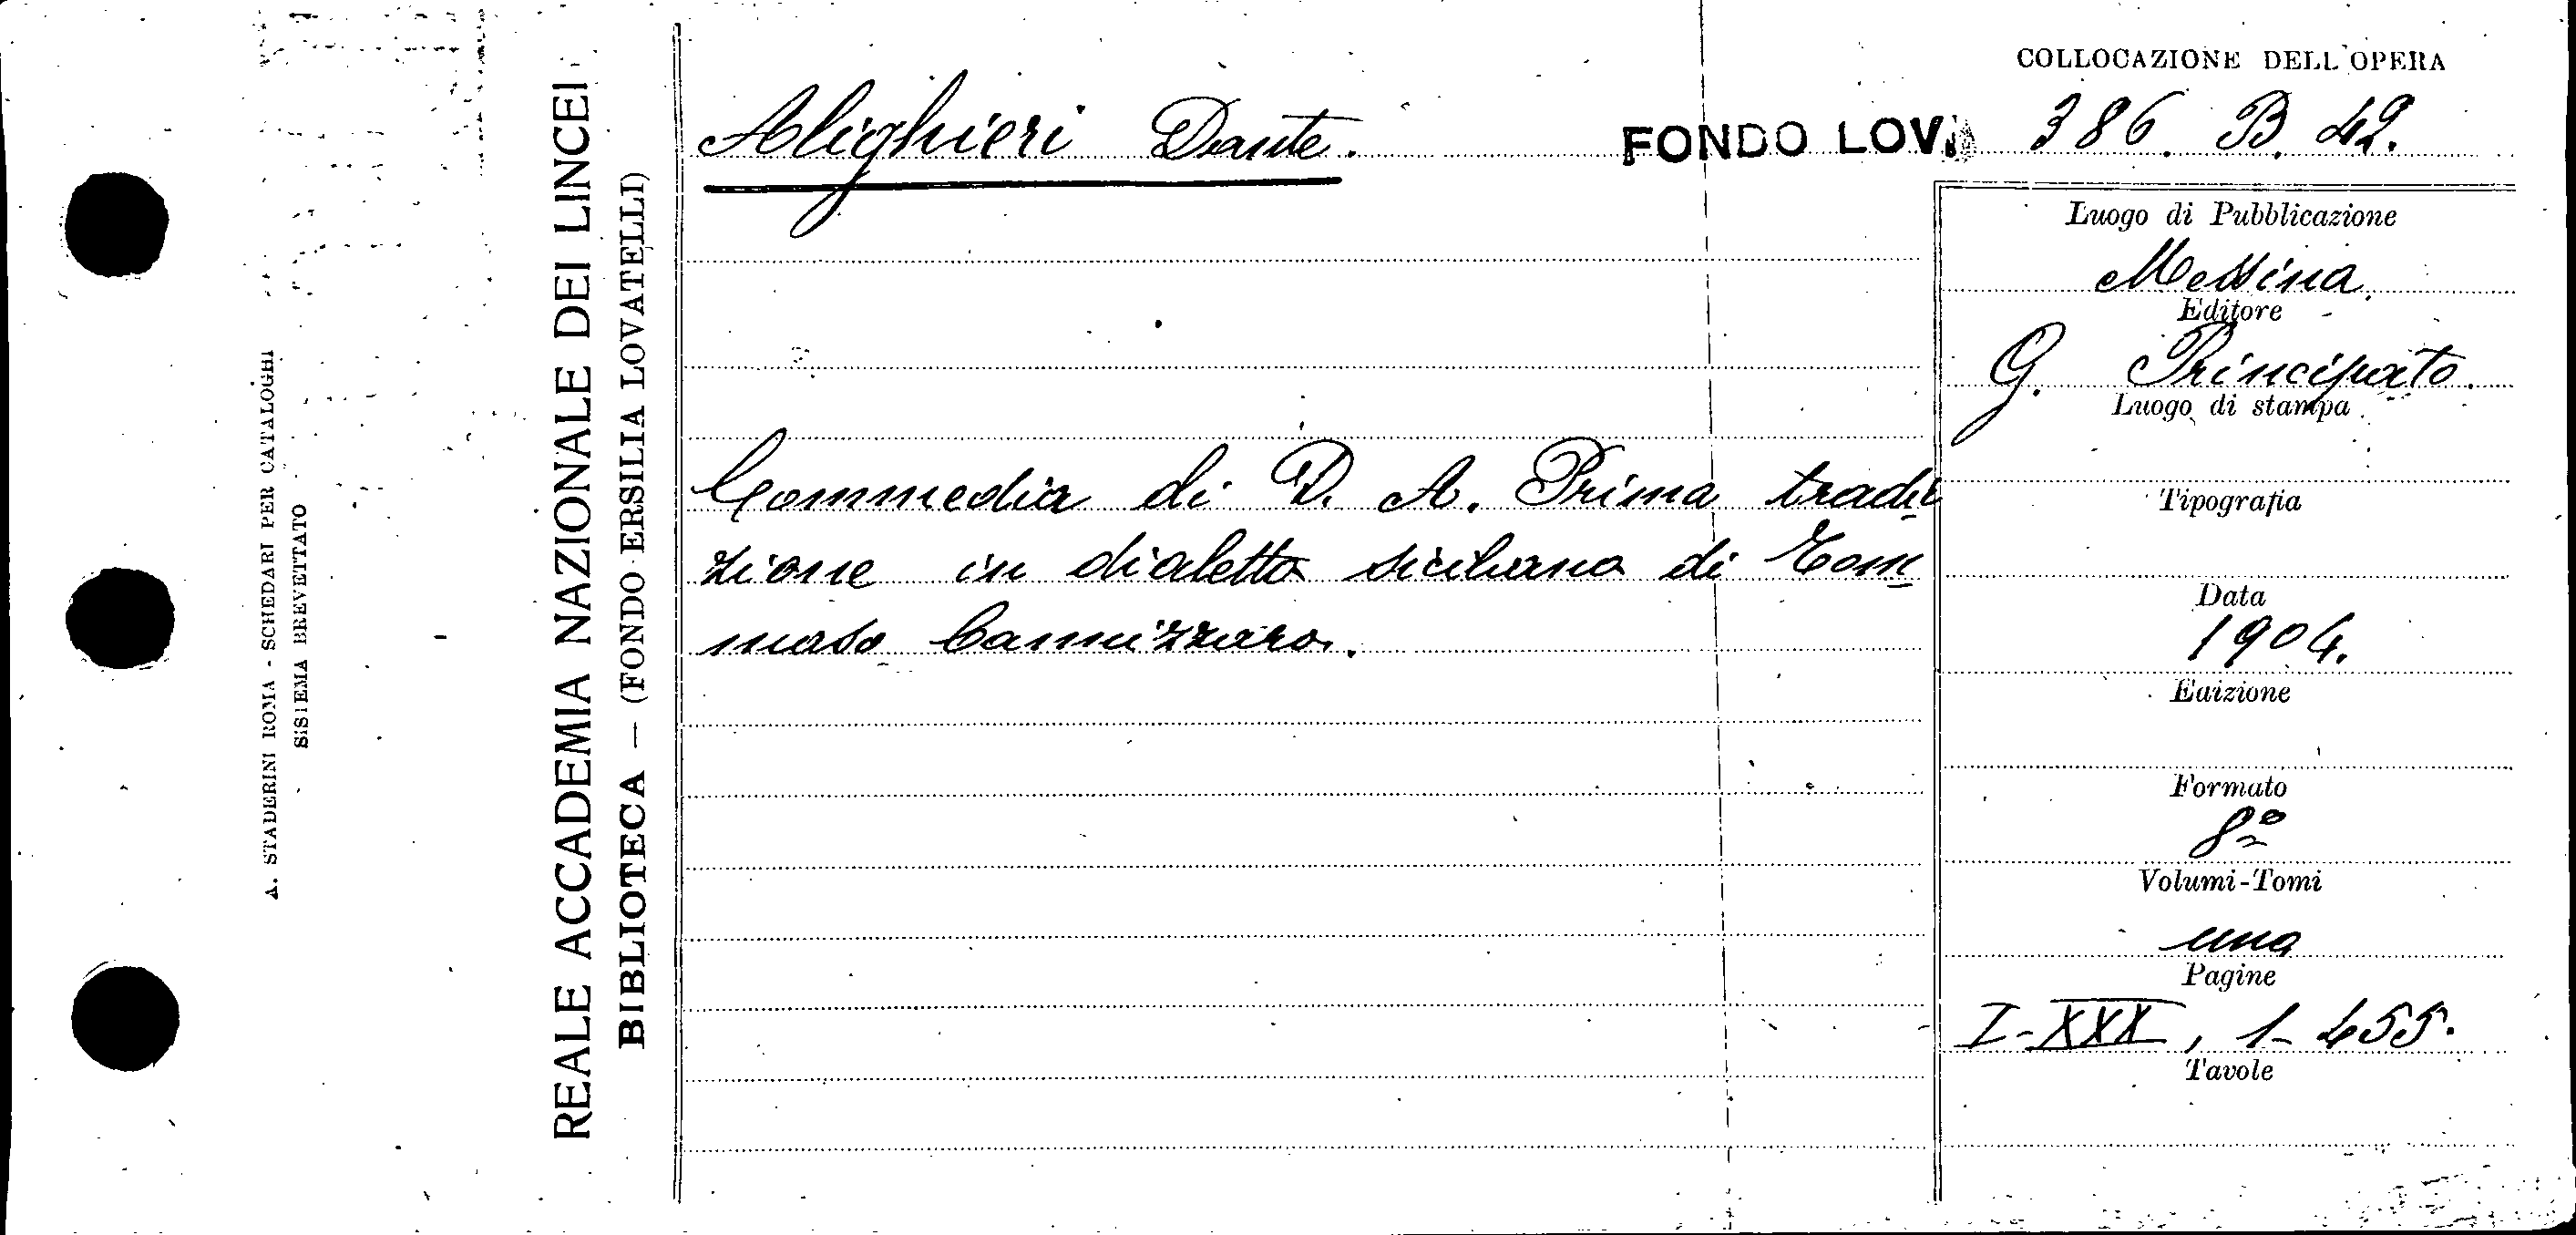 A. STADERINI ROMA - SCHEDARI PER CATALOGHI
SISTEMA BREVETTATO
REALE ACCADEMIA NAZIONALE DEI LINCEI
BIBLIOTECA — (FONDO ERSILIA LOVATELLI)
Alighieri Dante.
Commedia di D. A. Prima tradu
zione in dialetto siciliano di Tom
maso Cannizzaro.
COLLOCAZIONE DELL'OPERA
FONDO LOV. 386. B. 42.
Luogo di Pubblicazione
Messina.
Editore
G. Principato.
Luogo di stampa
Tipografia
Data
1904.
Edizione
Formato
8º
Volumi-Tomi
uno
Pagine
I-XXX, 1-455.
Tavole